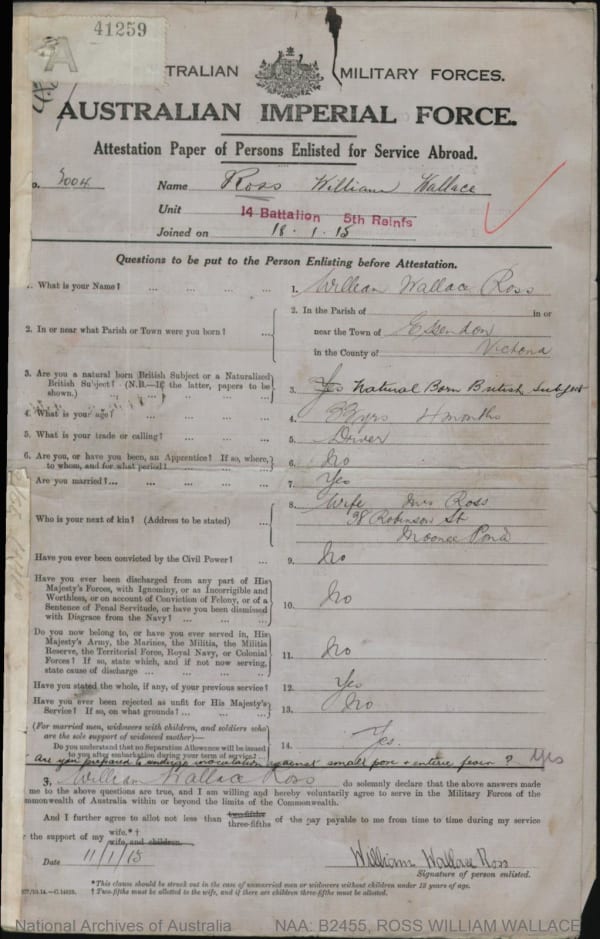 41259
A
TRALIAN MILITARY FORCES.
AUSTRALIAN IMPERIAL FORCE.
Attestation Paper of Persons Enlisted for Service Abroad.
o. 3004 Name Ross William Wallace
Unit 14 Battalion 5th Reinfs
Joined on 18.1.15
Questions to be put to the Person Enlisting before Attestation.
1. What is your Name? ... ... ... ... 1. William Wallace Ross
2. In or near what Parish or Town were you born? ... 2. In the Parish of in or
near the Town of Essendon
in the County of Victoria
3. Are you a natural born British Subject or a Naturalised
British Subject? (N.B.—If the latter, papers to be
shown.) ... ... ... 3. Yes Natural Born British Subject
4. What is your age? ... ... ... 4. 33 yrs 4 months
5. What is your trade or calling? ... ... ... 5. Driver
6. Are you, or have you been, an Apprentice? If so, where,
to whom, and for what period? ... ... 6. No
Are you married? ... ... ... ... 7. Yes
Who is your next of kin? (Address to be stated) ... 8. Wife Mrs Ross
98 Robinson St
Moonee Pond
Have you ever been convicted by the Civil Power? ... 9. No
Have you ever been discharged from any part of His
Majesty's Forces, with Ignominy, or as Incorrigible and
Worthless, or on account of Conviction of Felony, or of a
Sentence of Penal Servitude, or have you been dismissed
with Disgrace from the Navy? ... ... ... 10. No
Do you now belong to, or have you ever served in, His
Majesty's Army, the Marines, the Militia, the Militia
Reserve, the Territorial Force, Royal Navy, or Colonial
Forces? If so, state which, and if not now serving,
state cause of discharge ... ... ... ... 11. No
Have you stated the whole, if any, of your previous service? 12. Yes
Have you ever been rejected as unfit for His Majesty's
Service? If so, on what grounds? ... ... ... 13. No
(For married men, widowers with children, and soldiers who
are the sole support of widowed mother)—
Do you understand that no Separation Allowance will be issued
to you after embarkation during your term of service? 14. Yes.
Are you prepared to undergo inoculation against small pox & enteric fever? Yes
I, William Wallace Ross do solemnly declare that the above answers made
me to the above questions are true, and I am willing and hereby voluntarily agree to serve in the Military Forces of the
mmonwealth of Australia within or beyond the limits of the Commonwealth.
And I further agree to allot not less than two-fifths three-fifths of the pay payable to me from time to time during my service
the support of my wife.*†
wife and children.
Date 11/1/15 William Wallace Ross
Signature of person enlisted.
*This clause should be struck out in the case of unmarried men or widowers without children under 18 years of age.
† Two-fifths must be allotted to the wife, and if there are children three-fifths must be allotted.
National Archives of Australia NAA: B2455, ROSS WILLIAM WALLACE